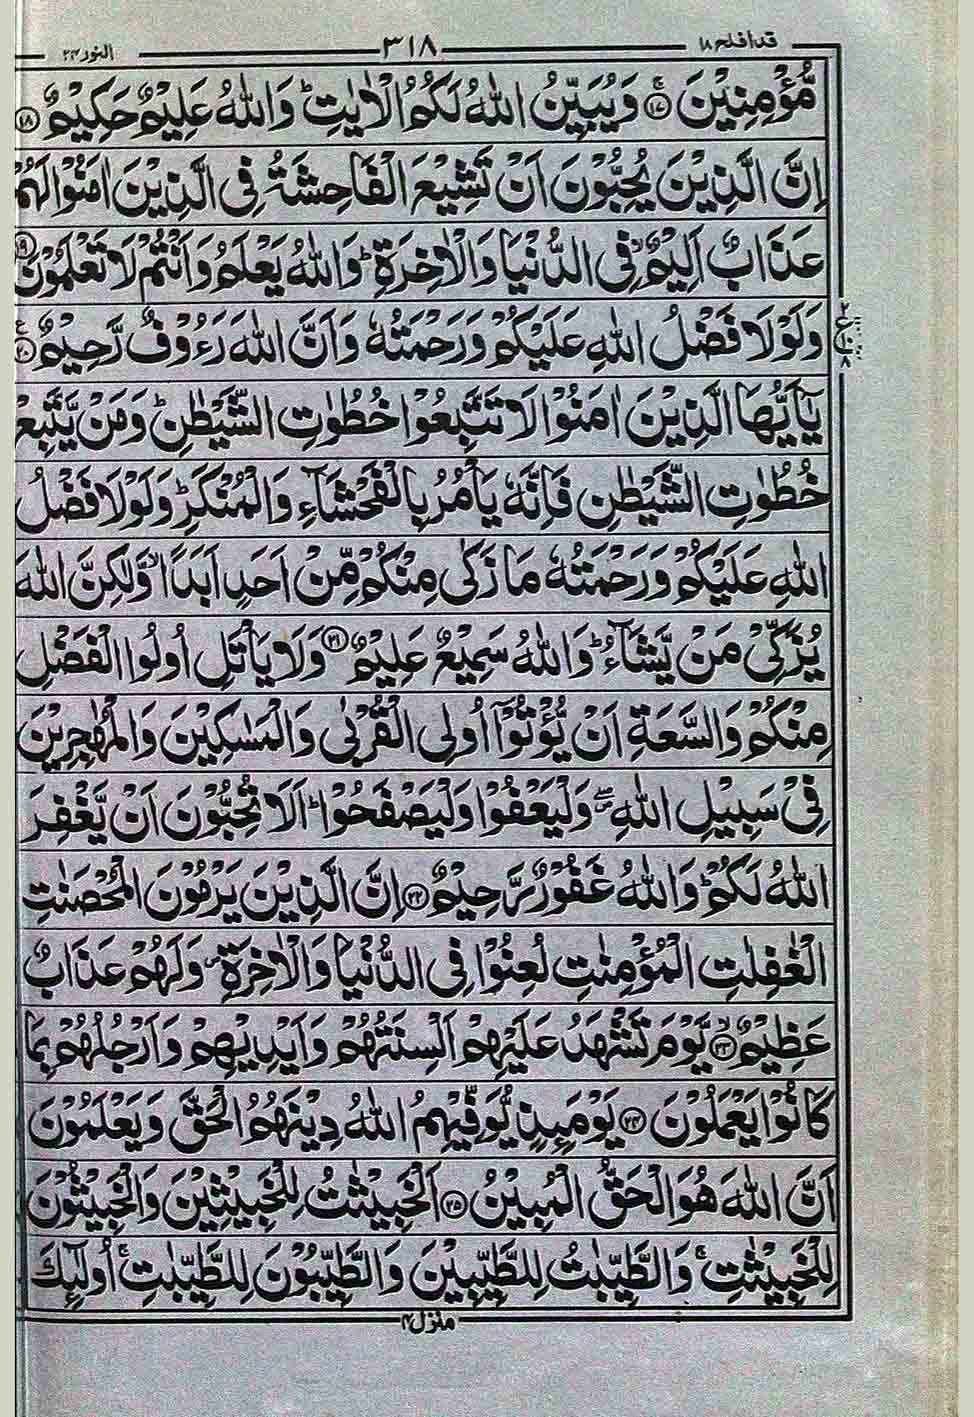 قد افلح ۱۸ ۳۱۸ النور ۲۴
مُّؤْمِنِيْنَ ۝۱۷ وَيُبَيِّنُ اللّٰهُ لَكُمُ الْاٰيٰتِ ؕ وَاللّٰهُ عَلِيْمٌ حَكِيْمٌ ۝۱۸
اِنَّ الَّذِيْنَ يُحِبُّوْنَ اَنْ تَشِيْعَ الْفَاحِشَةُ فِى الَّذِيْنَ اٰمَنُوْا لَهُمْ
عَذَابٌ اَلِيْمٌ ۙ فِى الدُّنْيَا وَالْاٰخِرَةِ ؕ وَاللّٰهُ يَعْلَمُ وَاَنْتُمْ لَا تَعْلَمُوْنَ ۝۱۹
وَلَوْلَا فَضْلُ اللّٰهِ عَلَيْكُمْ وَرَحْمَتُهٗ وَاَنَّ اللّٰهَ رَءُوْفٌ رَّحِيْمٌ ۝۲۰
يٰۤاَيُّهَا الَّذِيْنَ اٰمَنُوْا لَا تَتَّبِعُوْا خُطُوٰتِ الشَّيْطٰنِ ؕ وَمَنْ يَّتَّبِعْ
خُطُوٰتِ الشَّيْطٰنِ فَاِنَّهٗ يَاْمُرُ بِالْفَحْشَآءِ وَالْمُنْكَرِ ؕ وَلَوْلَا فَضْلُ
اللّٰهِ عَلَيْكُمْ وَرَحْمَتُهٗ مَا زَكٰى مِنْكُمْ مِّنْ اَحَدٍ اَبَدًا ۙ وَّلٰكِنَّ اللّٰهَ
يُزَكِّىْ مَنْ يَّشَآءُ ؕ وَاللّٰهُ سَمِيْعٌ عَلِيْمٌ ۝۲۱ وَلَا يَاْتَلِ اُولُوا الْفَضْلِ
مِنْكُمْ وَالسَّعَةِ اَنْ يُّؤْتُوْۤا اُولِى الْقُرْبٰى وَالْمَسٰكِيْنَ وَالْمُهٰجِرِيْنَ
فِىْ سَبِيْلِ اللّٰهِ ۖ وَلْيَعْفُوْا وَلْيَصْفَحُوْا ؕ اَلَا تُحِبُّوْنَ اَنْ يَّغْفِرَ
اللّٰهُ لَكُمْ ؕ وَاللّٰهُ غَفُوْرٌ رَّحِيْمٌ ۝۲۲ اِنَّ الَّذِيْنَ يَرْمُوْنَ الْمُحْصَنٰتِ
الْغٰفِلٰتِ الْمُؤْمِنٰتِ لُعِنُوْا فِى الدُّنْيَا وَالْاٰخِرَةِ ۪ وَلَهُمْ عَذَابٌ
عَظِيْمٌ ۙ۝۲۳ يَّوْمَ تَشْهَدُ عَلَيْهِمْ اَلْسِنَتُهُمْ وَاَيْدِيْهِمْ وَاَرْجُلُهُمْ بِمَا
كَانُوْا يَعْمَلُوْنَ ۝۲۴ يَوْمَئِذٍ يُّوَفِّيْهِمُ اللّٰهُ دِيْنَهُمُ الْحَقَّ وَيَعْلَمُوْنَ
اَنَّ اللّٰهَ هُوَ الْحَقُّ الْمُبِيْنُ ۝۲۵ اَلْخَبِيْثٰتُ لِلْخَبِيْثِيْنَ وَالْخَبِيْثُوْنَ
لِلْخَبِيْثٰتِ ۚ وَالطَّيِّبٰتُ لِلطَّيِّبِيْنَ وَالطَّيِّبُوْنَ لِلطَّيِّبٰتِ ۚ اُولٰٓئِكَ
منزل ۴